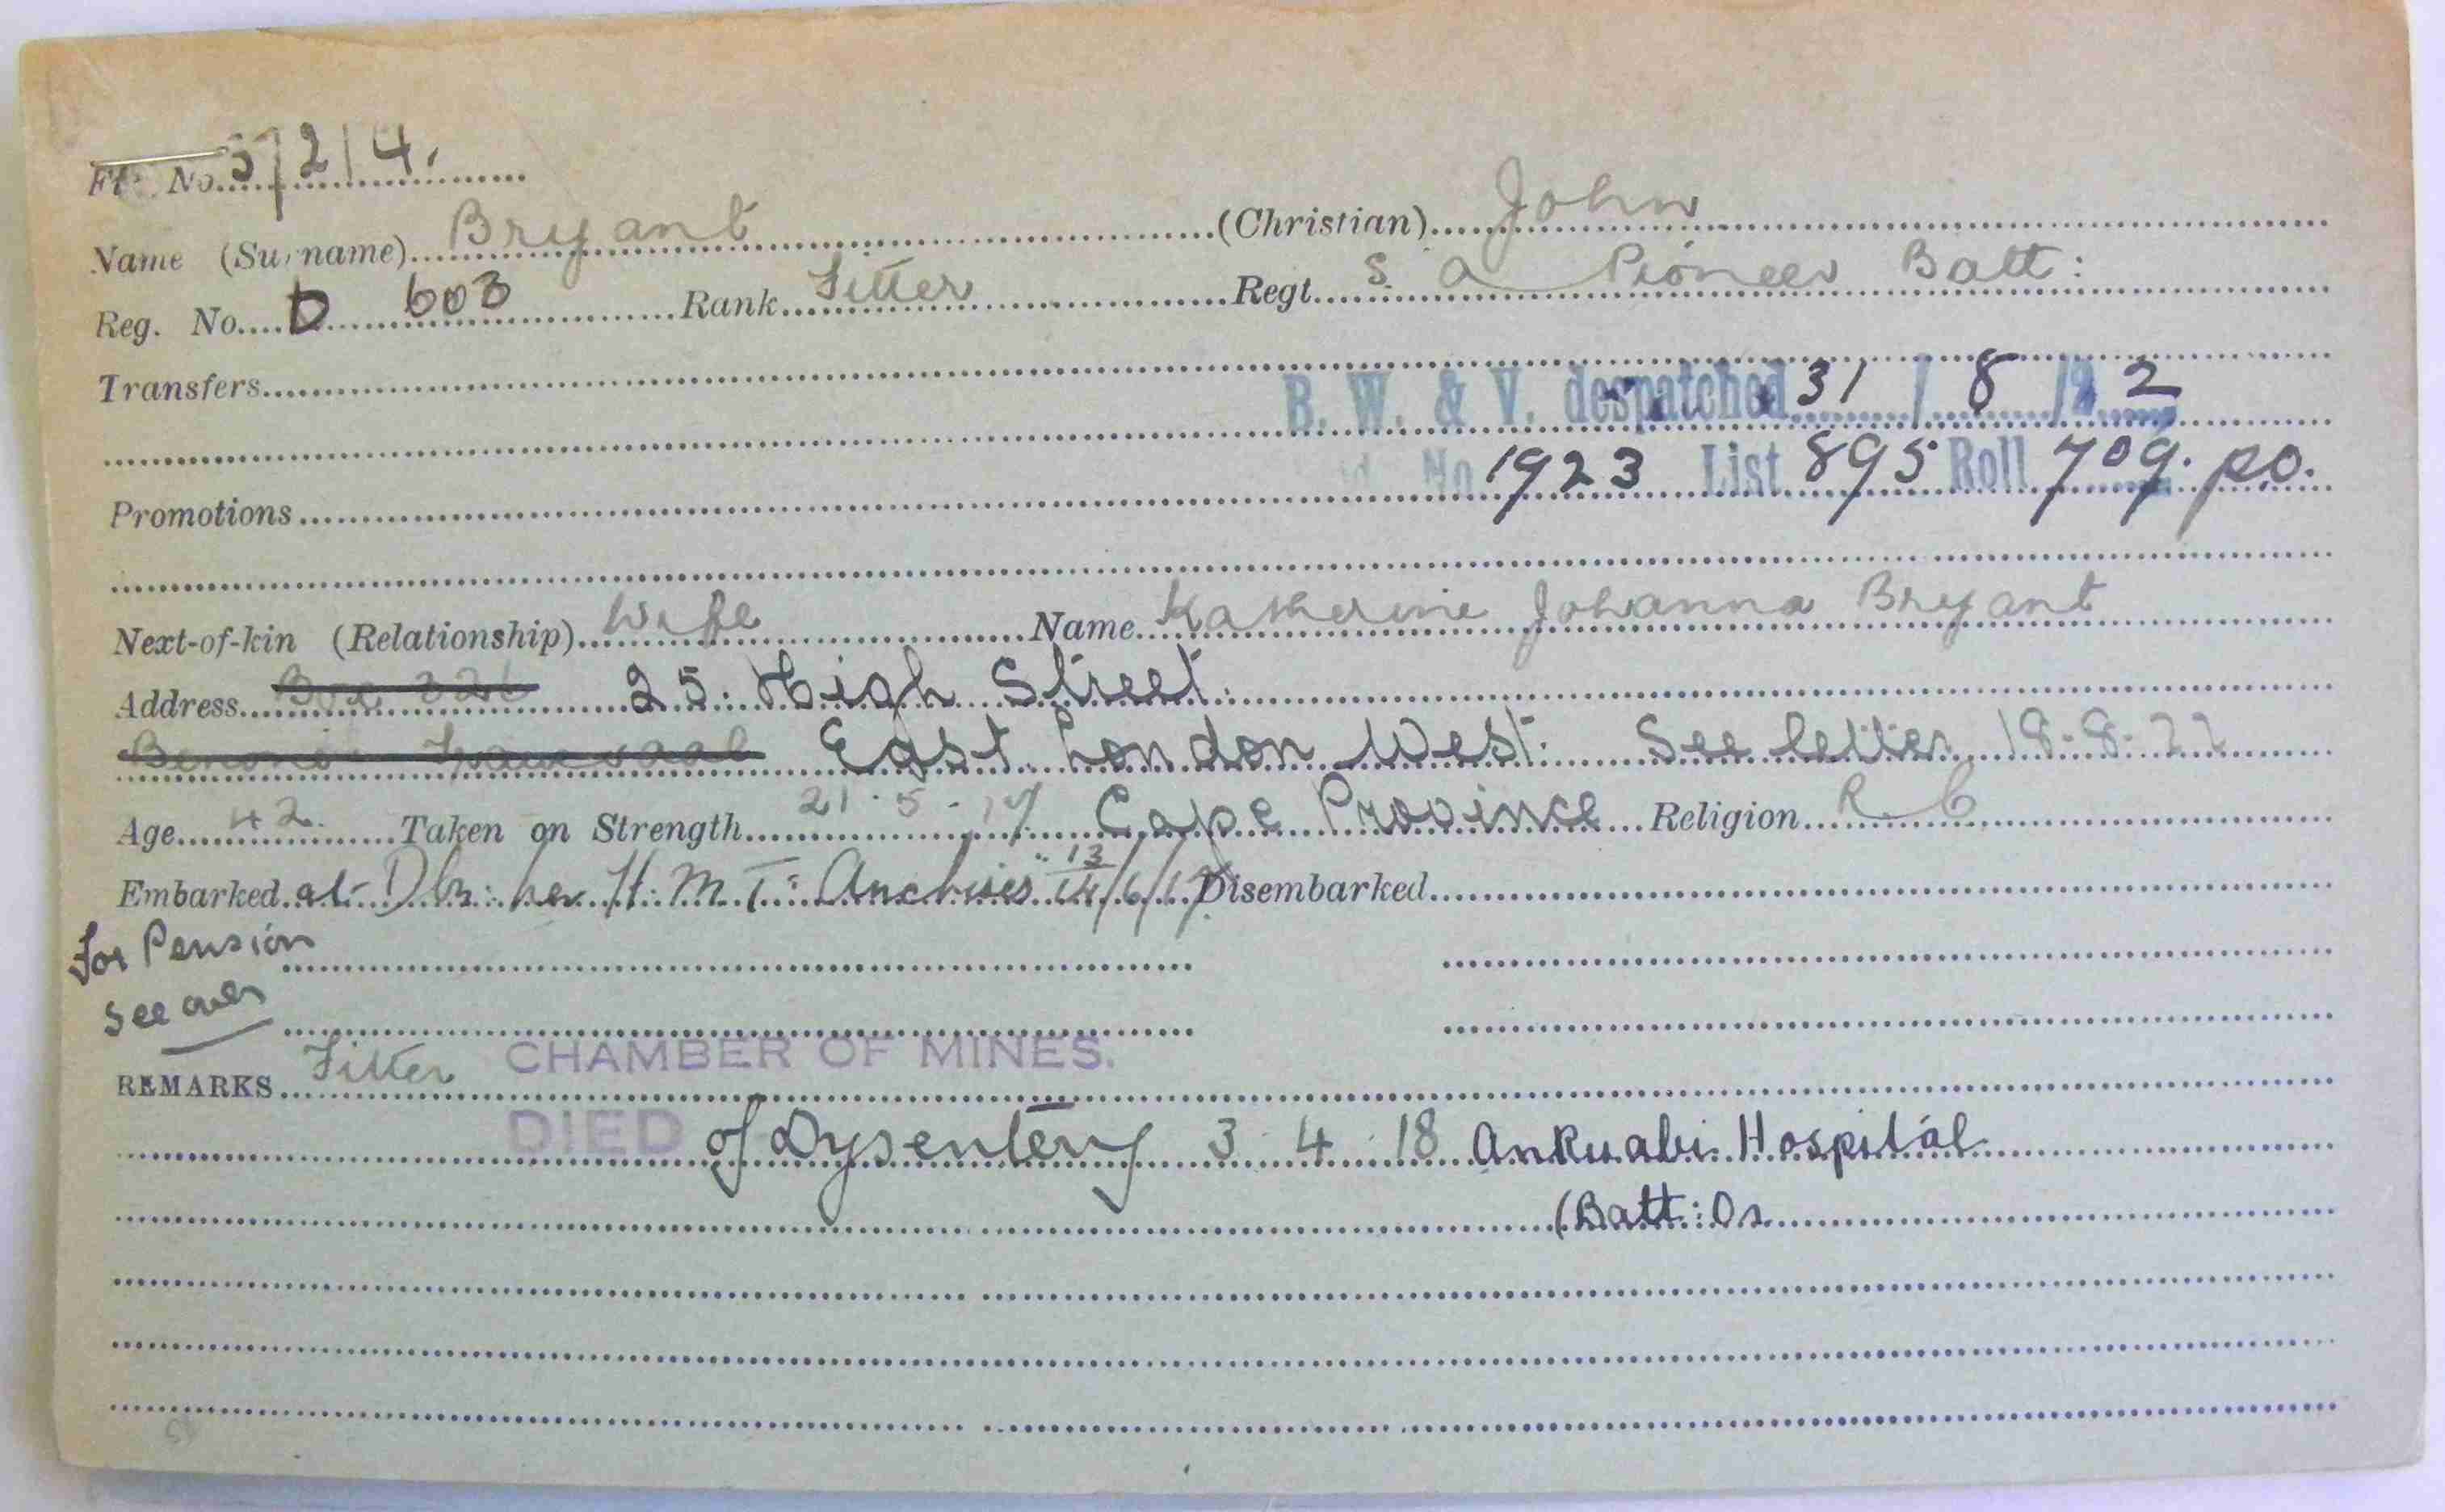 No. 5/2/4.
Name (Surname) Bryant (Christian) John
Reg. No. D 603 Rank Fitter Regt. S. A Pioneer Batt:
Transfers
B. W. & V. despatched 31 / 8 / 22
No 1923 List 895 Roll 709. po.
Promotions
Next-of-kin (Relationship) Wife Name Katherine Johanna Bryant
Address Box 326 25. High Street.
Benoni Transvaal East London West. See letter 18-8-22
Age 42. Taken on Strength 21-5-17 Cape Province Religion R C
Embarked at Dbn: per H. M. T: Anchises 13/14/6/17 Disembarked
For Pension
See over
REMARKS Fitter CHAMBER OF MINES.
DIED of Dysentery 3. 4. 18 Ankuabi Hospital
(Batt: Os